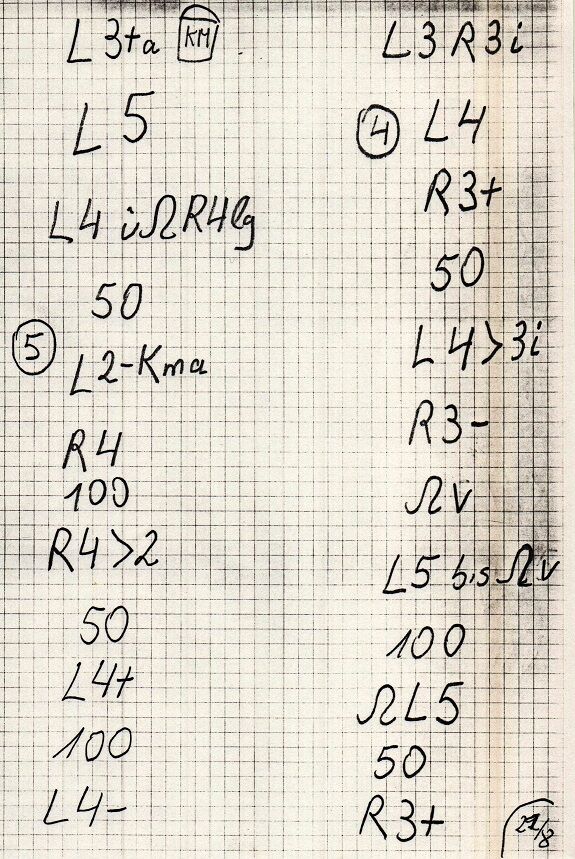 L3+a KM
L5
L4 iΩR4lg
50
⑤ L2-Kma
R4
100
R4>2
50
L4+
100
L4-
L3R3i
④ L4
R3+
50
L4>3i
R3-
Ωv
L5 bis Ωv
100
ΩL5
50
R3+